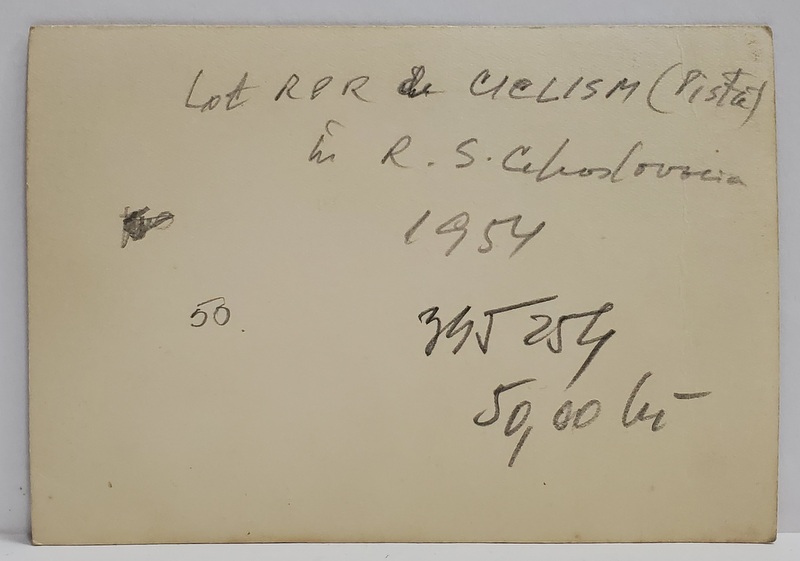 Lot RPR de CICLISM (Pistă)
în R. S. Cehoslovacia
1954
50.
345 254
50,00 lei